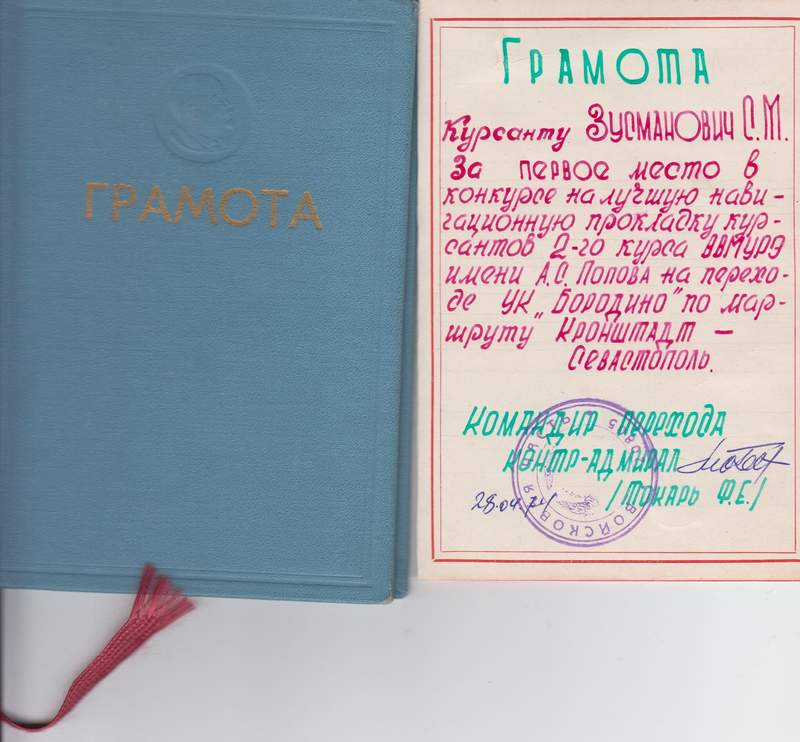 ГРАМОТА
ГРАМОТА
Курсанту ЗУСМАНОВИЧ С.М.
За первое место в
конкурсе на лучшую нави-
гационную прокладку кур-
сантов 2-го курса ВВМУРЭ
имени А.С. Попова на перехо-
де УК „Бородино" по мар-
шруту Кронштадт –
Севастополь.
Командир перехода
контр-адмирал
/Токарь Ф.Е./
28.04.74
ВОЙСКОВАЯ